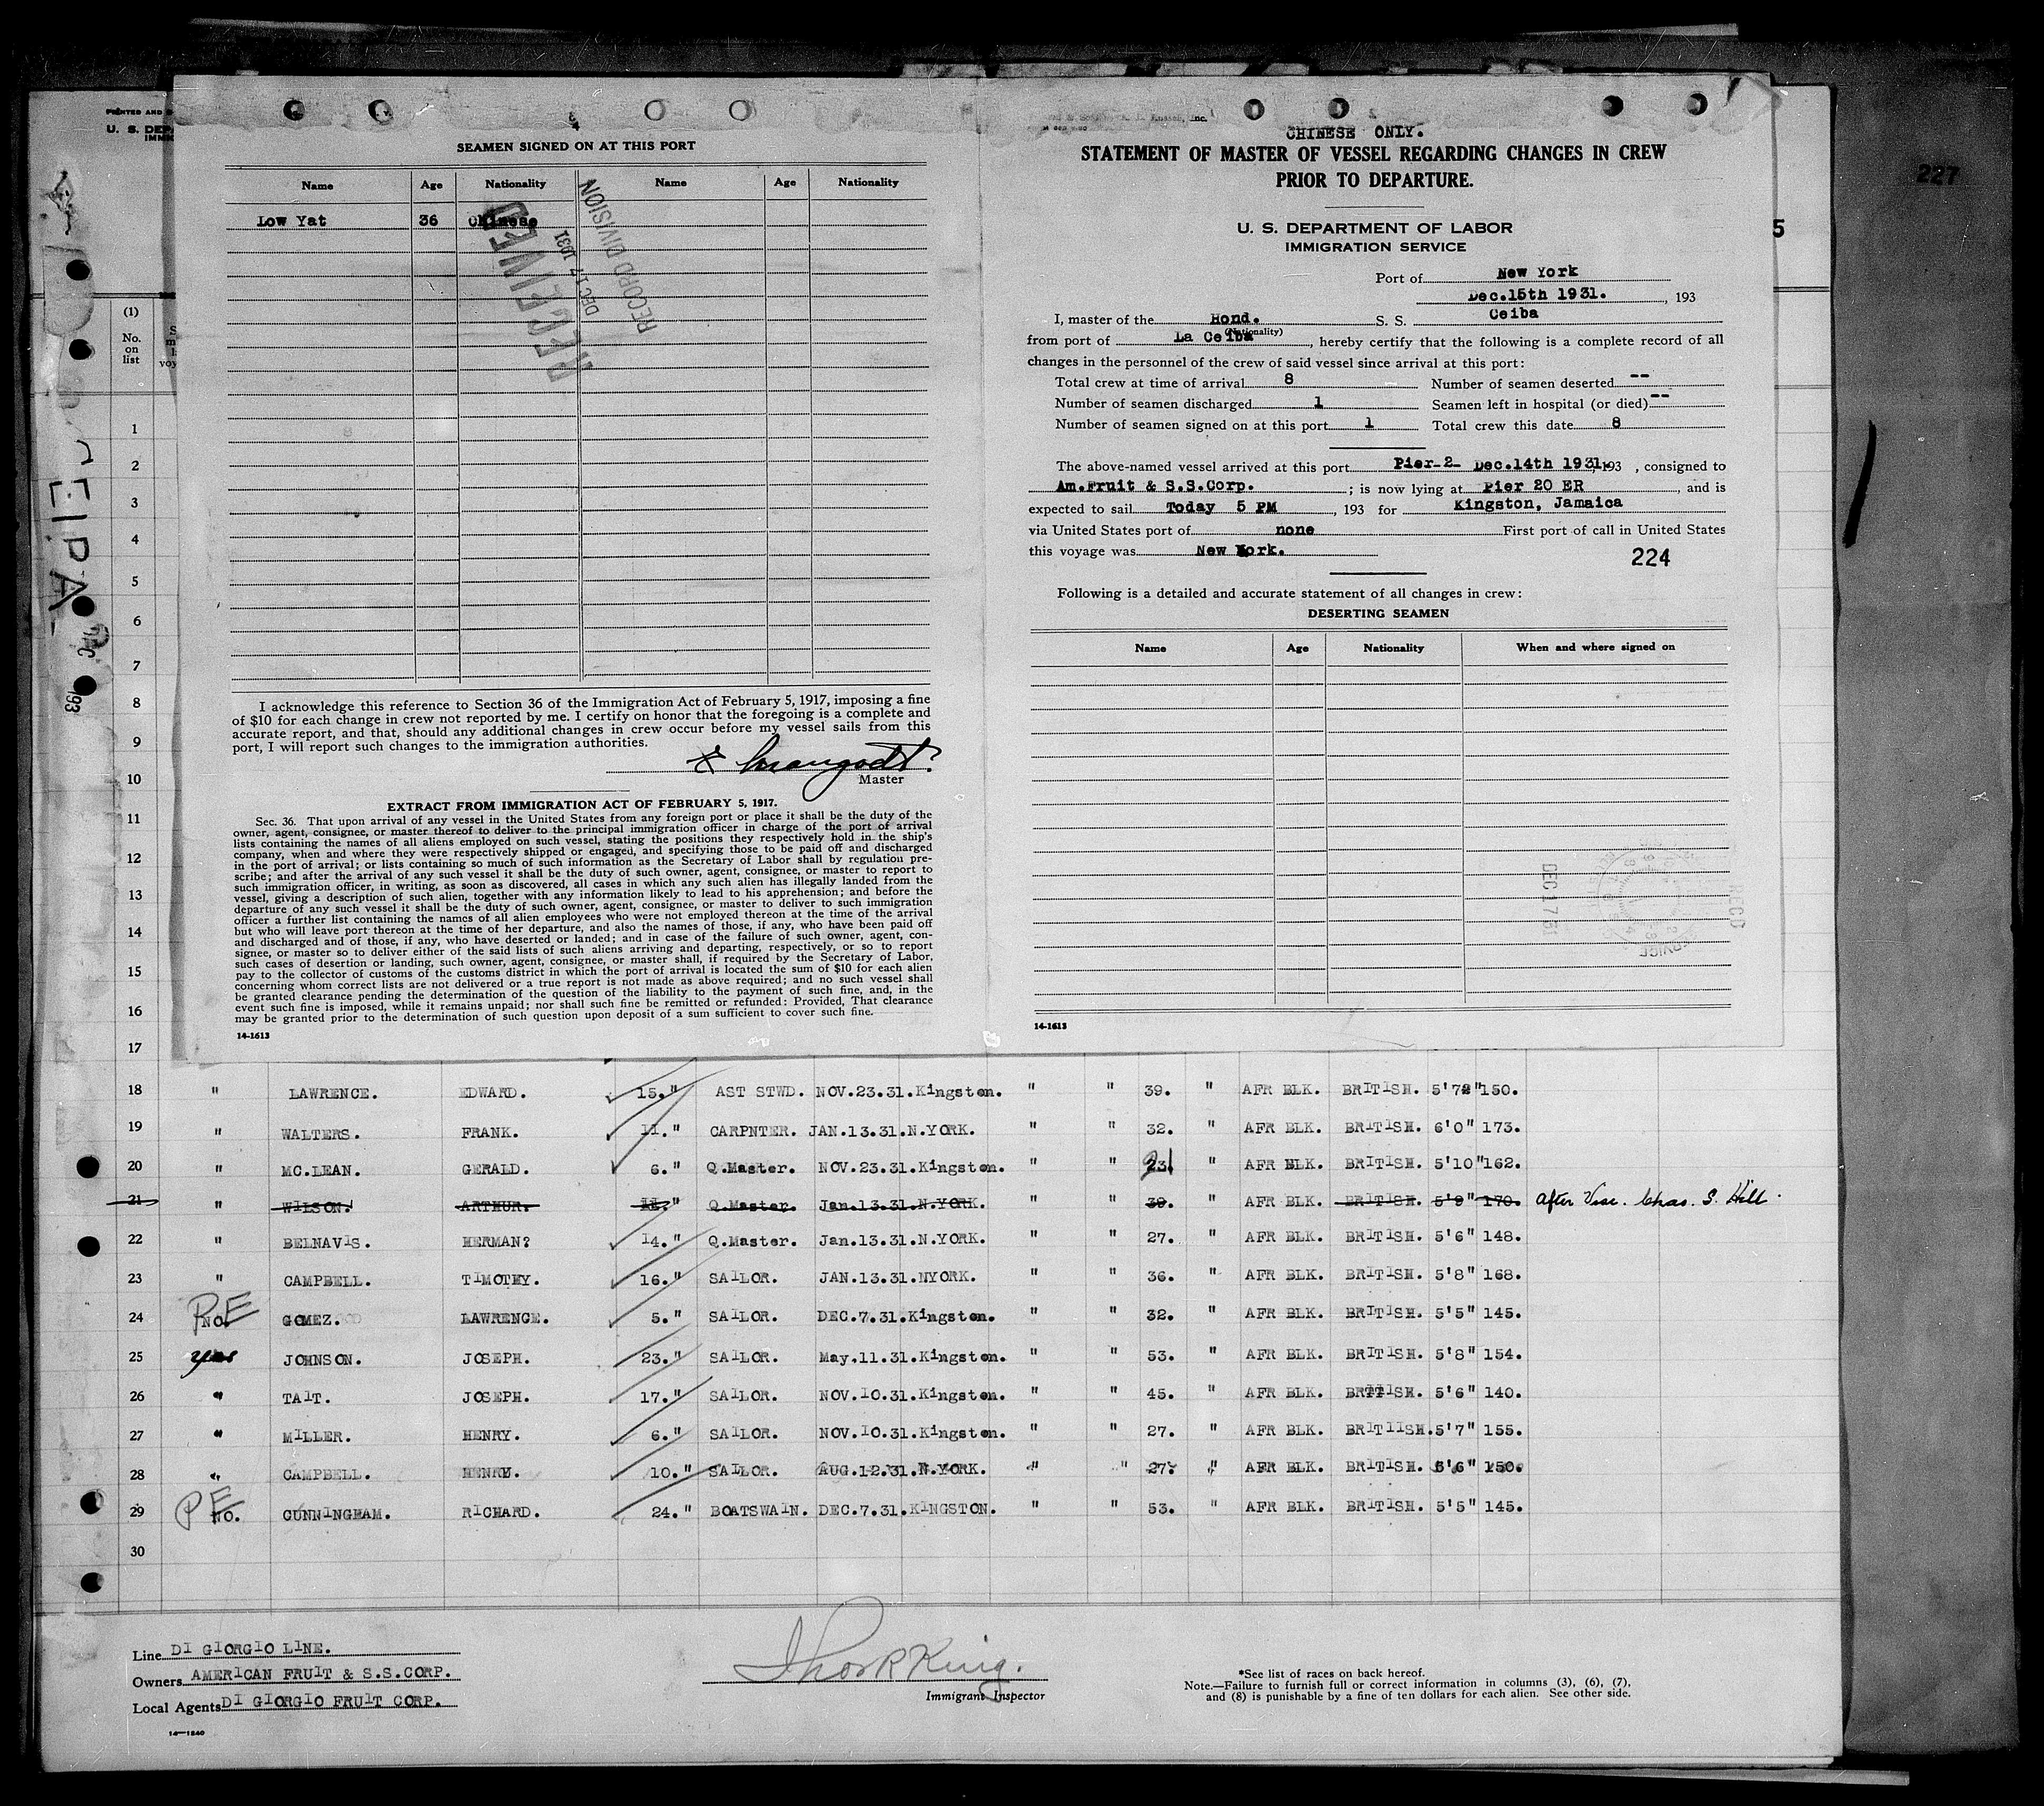 SEAMEN SIGNED ON AT THIS PORT
Name Age Nationality Name Age Nationality
Low Yat 36 Chinese
RECEIVED
DEC 17 1931
RECORD DIVISION
I acknowledge this reference to Section 36 of the Immigration Act of February 5, 1917, imposing a fine
of $10 for each change in crew not reported by me. I certify on honor that the foregoing is a complete and
accurate report, and that, should any additional changes in crew occur before my vessel sails from this
port, I will report such changes to the immigration authorities.
Master
EXTRACT FROM IMMIGRATION ACT OF FEBRUARY 5, 1917.
Sec. 36. That upon arrival of any vessel in the United States from any foreign port or place it shall be the duty of the
owner, agent, consignee, or master thereof to deliver to the principal immigration officer in charge of the port of arrival
lists containing the names of all aliens employed on such vessel, stating the positions they respectively hold in the ship's
company, when and where they were respectively shipped or engaged, and specifying those to be paid off and discharged
in the port of arrival; or lists containing so much of such information as the Secretary of Labor shall by regulation pre-
scribe; and after the arrival of any such vessel it shall be the duty of such owner, agent, consignee, or master to report to
such immigration officer, in writing, as soon as discovered, all cases in which any such alien has illegally landed from the
vessel, giving a description of such alien, together with any information likely to lead to his apprehension; and before the
departure of any such vessel it shall be the duty of such owner, agent, consignee, or master to deliver to such immigration
officer a further list containing the names of all alien employees who were not employed thereon at the time of the arrival
but who will leave port thereon at the time of her departure, and also the names of those, if any, who have been paid off
and discharged and of those, if any, who have deserted or landed; and in case of the failure of such owner, agent, con-
signee, or master so to deliver either of the said lists of such aliens arriving and departing, respectively, or so to report
such cases of desertion or landing, such owner, agent, consignee, or master shall, if required by the Secretary of Labor,
pay to the collector of customs of the customs district in which the port of arrival is located the sum of $10 for each alien
concerning whom correct lists are not delivered or a true report is not made as above required; and no such vessel shall
be granted clearance pending the determination of the question of the liability to the payment of such fine, and, in the
event such fine is imposed, while it remains unpaid; nor shall such fine be remitted or refunded: Provided, That clearance
may be granted prior to the determination of such question upon deposit of a sum sufficient to cover such fine.
14-1613
CHINESE ONLY.
STATEMENT OF MASTER OF VESSEL REGARDING CHANGES IN CREW
PRIOR TO DEPARTURE.
U. S. DEPARTMENT OF LABOR
IMMIGRATION SERVICE
Port of New York
Dec.15th 1931. , 193
I, master of the Hond. S. S. Ceiba
(Nationality)
from port of La Ceiba , hereby certify that the following is a complete record of all
changes in the personnel of the crew of said vessel since arrival at this port:
Total crew at time of arrival 8 Number of seamen deserted --
Number of seamen discharged 1 Seamen left in hospital (or died) --
Number of seamen signed on at this port 1 Total crew this date 8
The above-named vessel arrived at this port Pier-2- Dec.14th 1931, 193 , consigned to
Am.Fruit & S.S.Corp. ; is now lying at Pier 20 ER , and is
expected to sail Today 5 PM , 193 for Kingston, Jamaica
via United States port of none First port of call in United States
this voyage was New York.
224
Following is a detailed and accurate statement of all changes in crew:
DESERTING SEAMEN
Name Age Nationality When and where signed on
DEC 17 31
REC'D
14-1613
227
5
PRINTED AND
U. S. DEP
IMMI
(1)
No.
on
list
voy
1
2
3
4
5
6
7
8
9
10
11
12
13
14
15
16
17
18 " LAWRENCE. EDWARD. 15." AST STWD. NOV.23.31.Kingston. " " 39. " AFR BLK. BRITISH. 5'7" 150.
19 " WALTERS. FRANK. 11." CARPNTER. JAN.13.31.N.YORK. " " 32. " AFR BLK. BRITISH. 6'0" 173.
20 " MC.LEAN. GERALD. 6." Q.Master. NOV.23.31.Kingston. " " 21 " AFR BLK. BRITISH. 5'10" 162.
21 " WILSON. ARTHUR. 11." Q.Master. Jan.13.31.N.YORK. " " 39. " AFR BLK. BRITISH. 5'9" 170. After Vise. Chas. S. Hill
22 " BELNAVIS. HERMAN? 14." Q.Master. Jan.13.31.N.YORK. " " 27. " AFR BLK. BRITISH. 5'6" 148.
23 " CAMPBELL. TIMOTHY. 16." SAILOR. JAN.13.31.NYORK. " " 36. " AFR BLK. BRITISH. 5'8" 168.
24 PE NO. GOMEZ. LAWRENCE. 5." SAILOR. DEC.7.31.Kingston. " " 32. " AFR BLK. BRITISH. 5'5" 145.
25 yes JOHNSON. JOSEPH. 23." SAILOR. May.11.31.Kingston. " " 53. " AFR BLK. BRITISH. 5'8" 154.
26 " TAIT. JOSEPH. 17." SAILOR. NOV.10.31.Kingston. " " 45. " AFR BLK. BRTTISH. 5'6" 140.
27 " MILLER. HENRY. 6." SAILOR. NOV.10.31.Kingston. " " 27. " AFR BLK. BRITIISH. 5'7" 155.
28 " CAMPBELL. HENRY. 10." SAILOR. AUG.12.31.N.YORK. " " 27. " AFR BLK. BRITISH. 5'6" 150.
29 PE no. CUNNINGHAM. RICHARD. 24." BOATSWAIN. DEC.7.31.KINGSTON. " " 53. " AFR BLK. BRITISH. 5'5" 145.
30
Line DI GIORGIO LINE.
Owners AMERICAN FRUIT & S.S.CORP.
Local Agents DI GIORGIO FRUIT CORP.
14-1540
Immigrant Inspector
*See list of races on back hereof.
Note.—Failure to furnish full or correct information in columns (3), (6), (7),
and (8) is punishable by a fine of ten dollars for each alien. See other side.